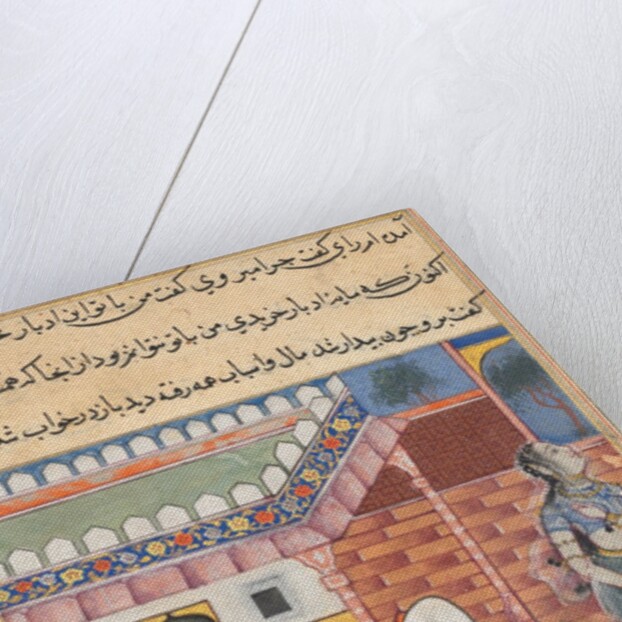 کفت جرا میروی کفت من با تو این ادبار
اکنون که مایهٔ ادبار خریدی من با تو نتوانم بود از اینجا که
کفت برو جون بیدار شد مال و اسباب همه رفته دید باز در خواب شد